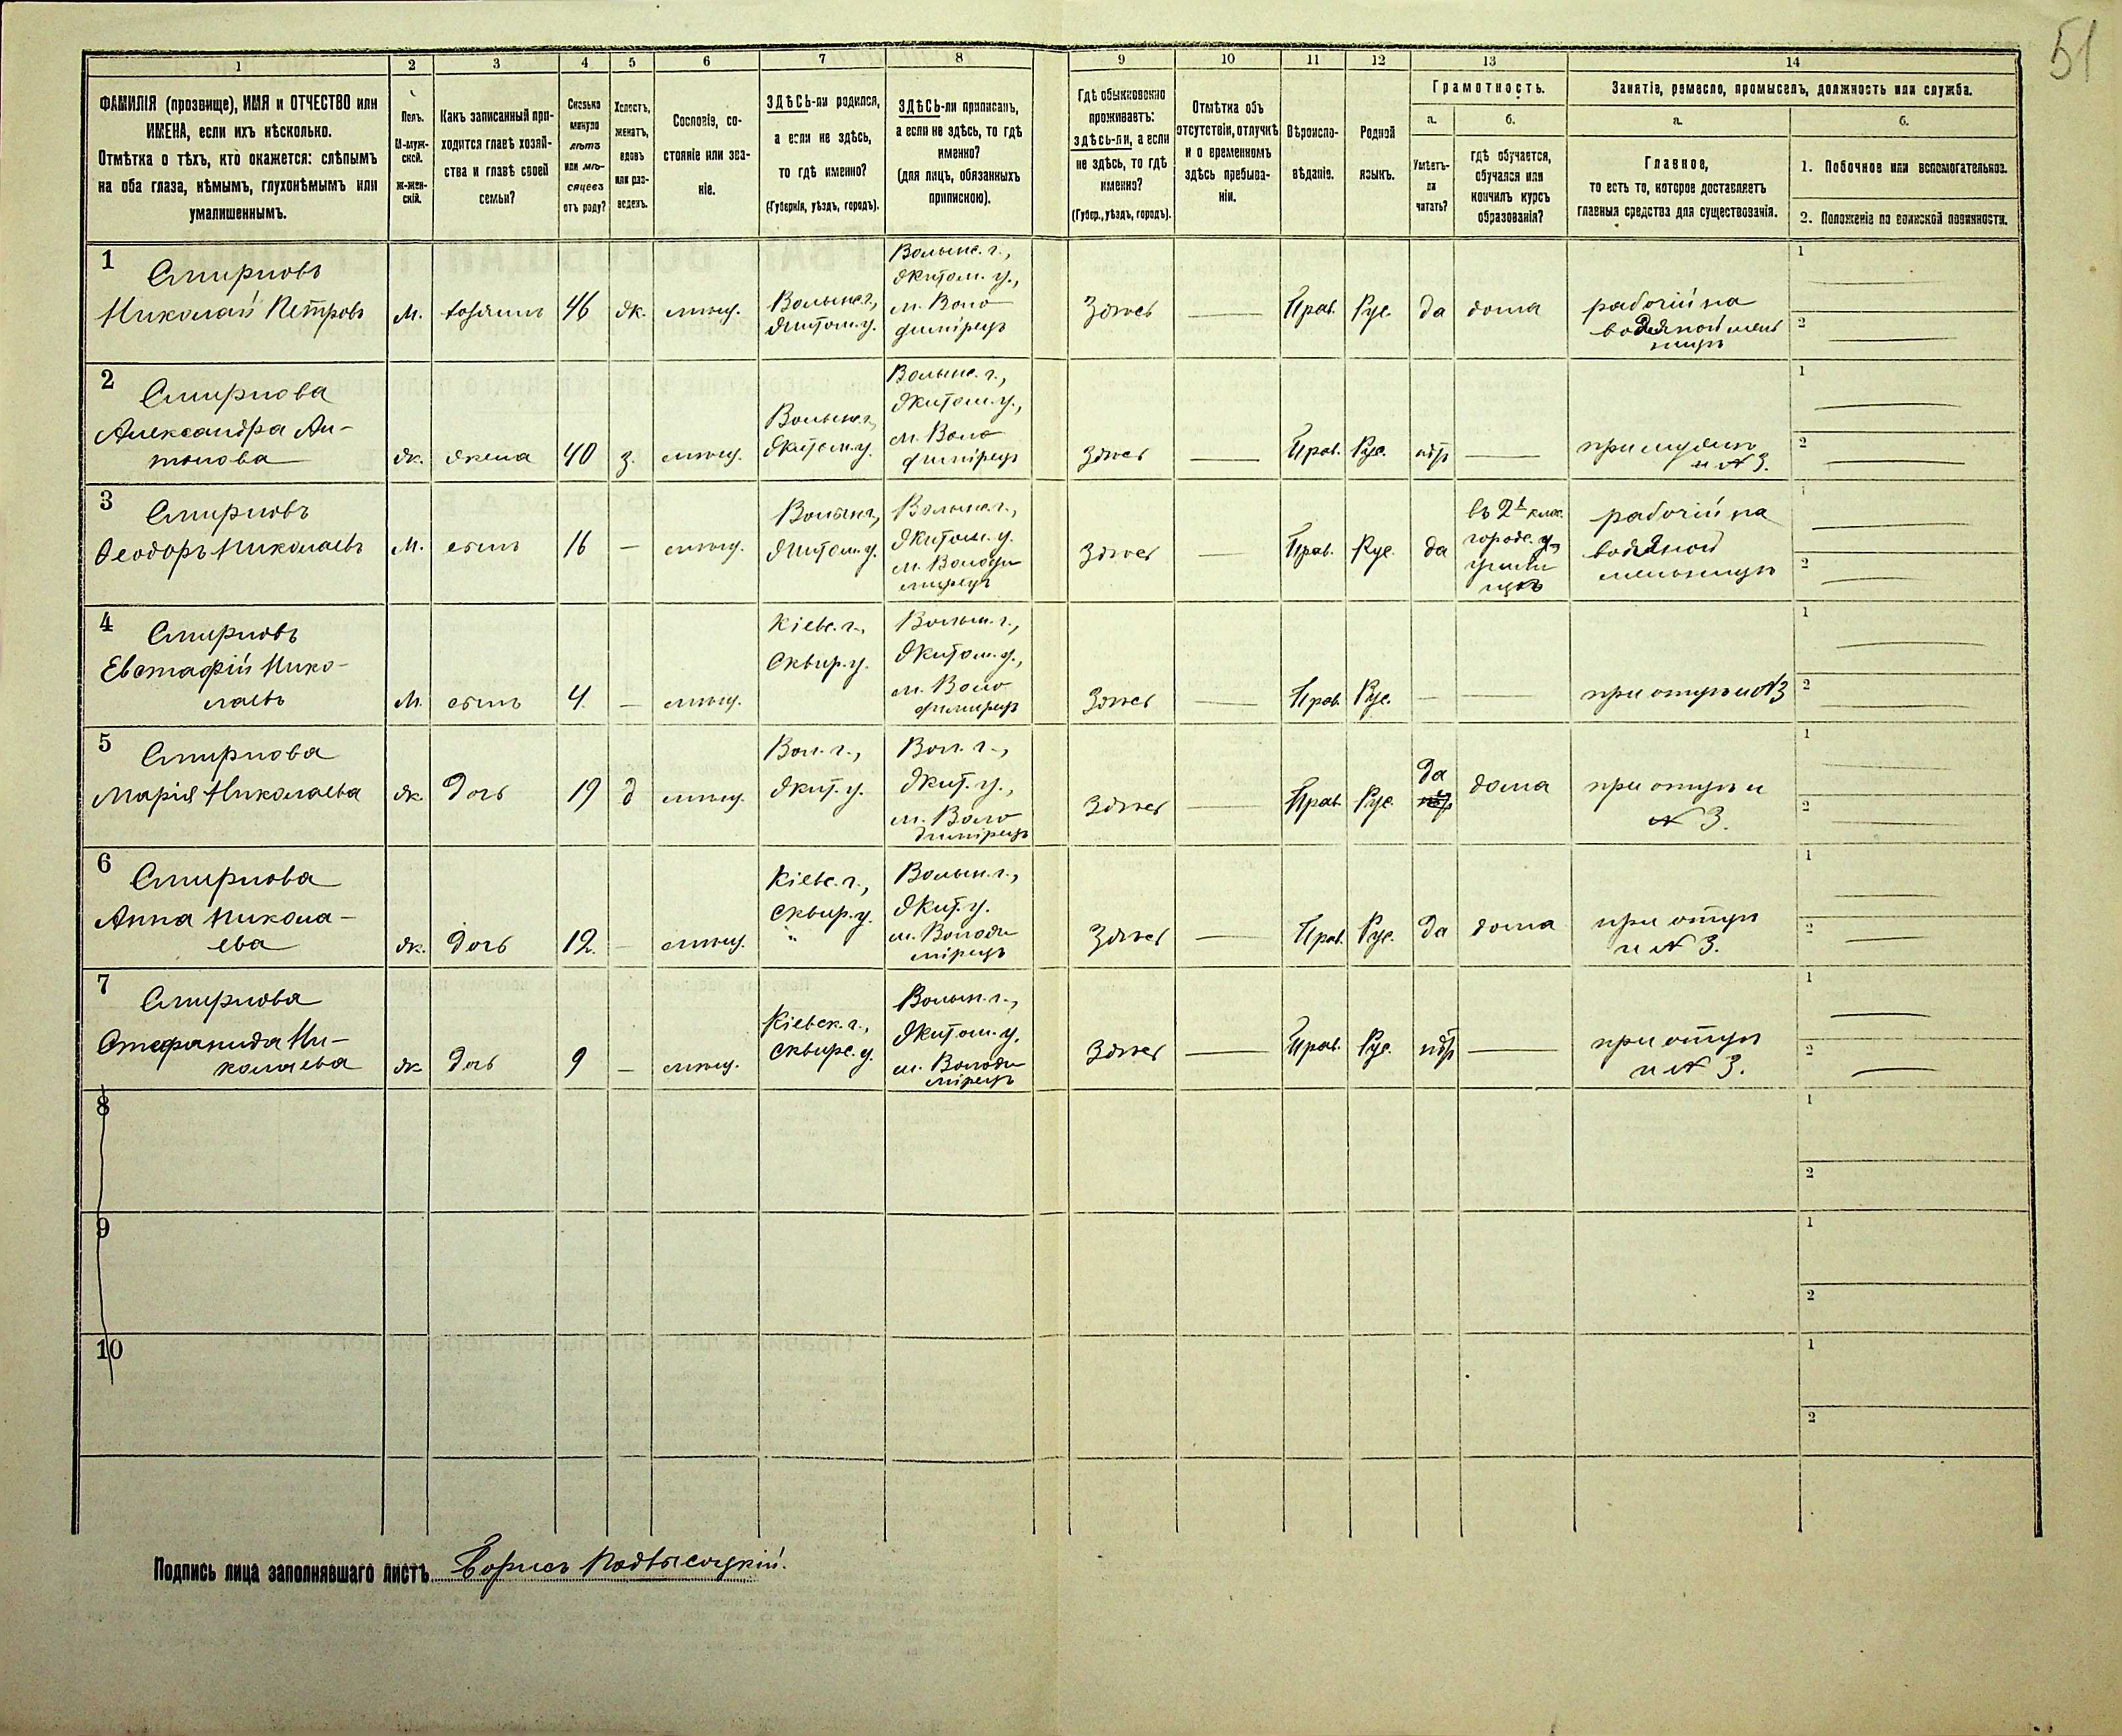 51
1 2 3 4 5 6 7 8 9 10 11 12 13 14
ФАМИЛІЯ (прозвище), ИМЯ и ОТЧЕСТВО или
ИМЕНА, если ихъ нѣсколько.
Отмѣтка о тѣхъ, кто окажется: слѣпымъ
на оба глаза, нѣмымъ, глухонѣмымъ или
умалишеннымъ.
Полъ.
М-муж-
ской.
Ж-жен-
скій.
Какъ записанный при-
ходится главѣ хозяй-
ства и главѣ своей
семьи?
Сколько
минуло
лѣтъ
или мѣ-
сяцевъ
отъ роду?
Холостъ,
женатъ,
вдовъ
или раз-
веденъ.
Сословіе, со-
стояніе или зва-
ніе.
ЗДѢСЬ-ли родился,
а если не здѣсь,
то гдѣ именно?
(Губернія, уѣздъ, городъ).
ЗДѢСЬ-ли приписанъ,
а если не здѣсь, то гдѣ
именно?
(для лицъ, обязанныхъ
припискою).
Гдѣ обыкновенно
проживаетъ:
здѣсь-ли, а если
не здѣсь, то гдѣ
именно?
(Губер., уѣздъ, городъ).
Отмѣтка объ
отсутствіи, отлучкѣ
и о временномъ
здѣсь пребыва-
ніи.
Вѣроиспо-
вѣданіе.
Родной
языкъ.
Грамотность.
а.
Умѣетъ-
ли
читать?
б.
гдѣ обучается,
обучался или
кончилъ курсъ
образованія?
Занятіе, ремесло, промыселъ, должность или служба.
а.
Главное,
то есть то, которое доставляетъ
главныя средства для существованія.
б.
1. Побочное или вспомогательное.
2. Положеніе по воинской повинности.
1
Смирновъ
Николай Петровъ
М.
хозяинъ
46
ж.
мѣщ.
Волынс. г.,
Житом. у.
Волынс. г.,
Житом. у.,
м. Воло
димірецъ
Здѣсь
Прав.
Рус.
да
дома
рабочій на
водяной мель
ницѣ
1
2
2
Смирнова
Александра Ан-
тонова
ж.
жена
40
з.
мѣщ.
Волынс. г.,
Житом. у.
Волынс. г.,
Житом. у.,
м. Воло
димірецъ
Здѣсь
Прав.
Рус.
нѣтъ
при мужѣ
и № 3.
1
2
3
Смирновъ
Ѳеодоръ Николаевъ
М.
сынъ
16
мѣщ.
Волын. г.,
Житом. у.
Волынс. г.,
Житом. у.
м. Володи
мірецъ
Здѣсь
Прав.
Рус.
да
въ 2х клас.
городс. у.
училищѣ
рабочій на
водяной
мельницѣ
1
2
4
Смирновъ
Евстафій Нико-
лаевъ
М.
сынъ
4
мѣщ.
Кіевс. г.,
Сквир. у.
Волын. г.,
Житом. у.,
м. Воло
димірецъ
Здѣсь
Прав.
Рус.
при отцѣ и № 3
1
2
5
Смирнова
Марія Николаева
ж.
дочь
19
д
мѣщ.
Вол. г.,
Жит. у.
Вол. г.,
Жит. у.,
м. Воло
димірецъ
Здѣсь
Прав.
Рус.
да
нѣтъ
дома
при отцѣ и
№ 3.
1
2
6
Смирнова
Анна Никола-
ева
ж.
дочь
12
мѣщ.
Кіевс. г.,
Сквир. у.
Волын. г.,
Жит. у.
м. Володи
мірецъ
Здѣсь
Прав.
Рус.
да
дома
при отцѣ
и № 3.
1
2
7
Смирнова
Стефанида Ни-
колаева
ж
дочь
9
мѣщ.
Кіевск. г.,
Сквирс. у.
Волын. г.,
Житом. у.
м. Володи
мірецъ
Здѣсь
Прав.
Рус.
нѣтъ
при отцѣ
и № 3.
1
2
8
1
2
9
1
2
10
1
2
Подпись лица заполнявшаго листъ Борисъ Подвысоцкій.